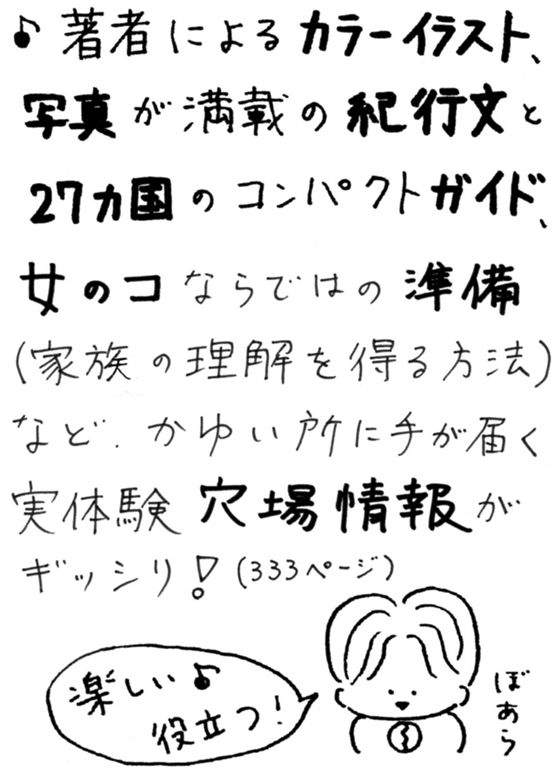 ♪著者によるカラーイラスト、
写真が満載の紀行文と
27ヵ国のコンパクトガイド、
女のコならではの準備
(家族の理解を得る方法)
など、かゆい所に手が届く
実体験 穴場情報が
ギッシリ!(333ページ)
楽しい♪
役立つ!
ぼあら